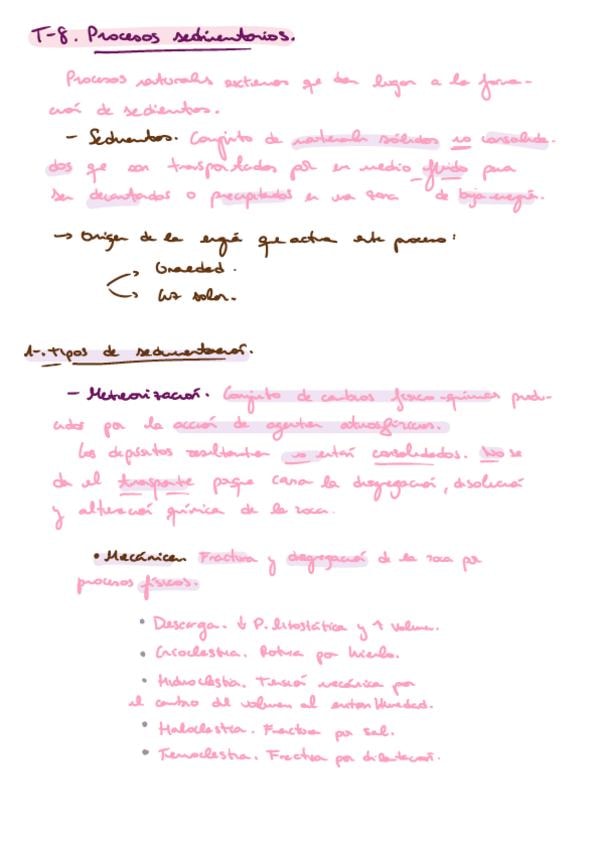 T-8. Procesos sedimentarios.
Procesos naturales externos que dan lugar a la forma-
ción de sedimentos.
- Sedimentos. Conjunto de materiales sólidos no consolida-
dos que son transportados por un medio fluido para
ser decantados o precipitados en una zona de baja energía.
→ Origen de la energía que activa este proceso:
Gravedad.
Luz solar.
1-. Tipos de sedimentación.
- Meteorización. Conjunto de cambios físico-químicos produ-
cidos por la acción de agentes atmosféricos.
Los depósitos resultantes no están consolidados. No se
da el transporte porque causa la disgregación, disolución
y alteración química de la roca.
• Mecánica. Fractura y disgregación de la roca por
procesos físicos.
• Descarga. ↓ P. litostática y ↑ volumen.
• Crioclastia. Rotura por hielo.
• Hidroclastia. Tensión mecánica por
el cambio del volumen al entrar humedad.
• Haloclastia. Fractura por sal.
• Termoclastia. Fractura por dilatación.